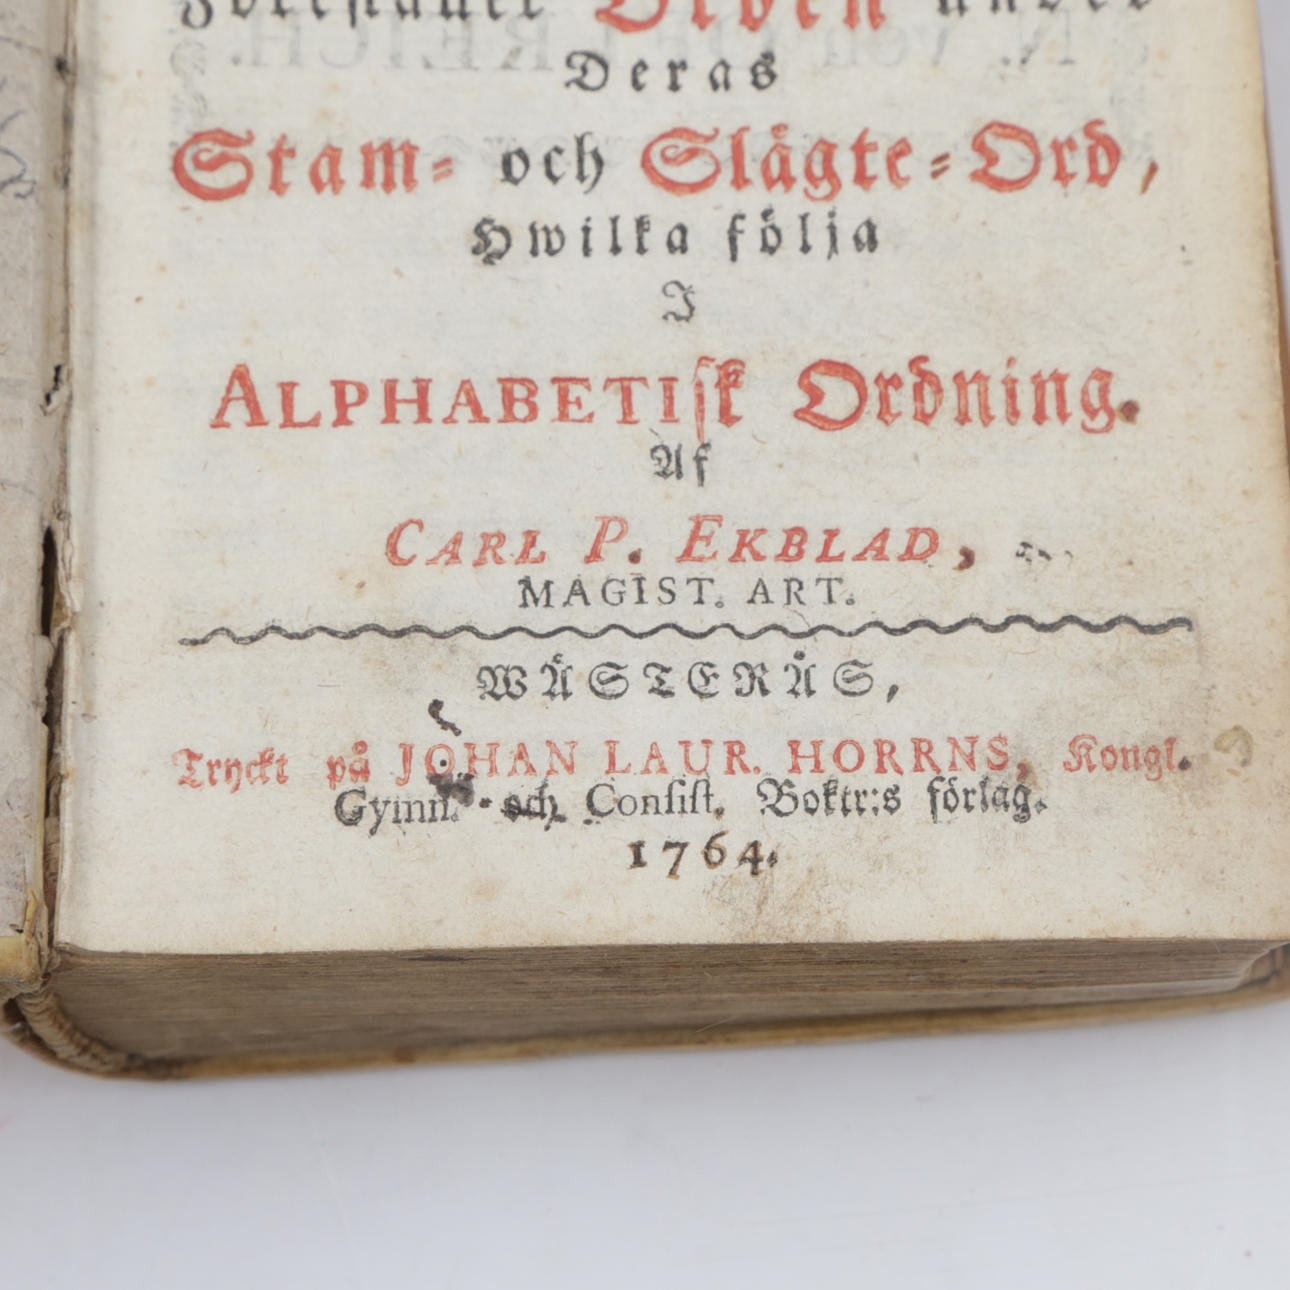 Föreställer Orden under
Deras
Stam- och Slägte-Ord,
Hwilka följa
I
ALPHABETIſk Ordning.
Af
CARL P. EKBLAD,
MAGIST. ART.
WÄSTERÅS,
Tryckt på JOHAN LAUR. HORRNS, Kongl.
Gymn. och Conſiſt. Boktr:s förlag.
1764.